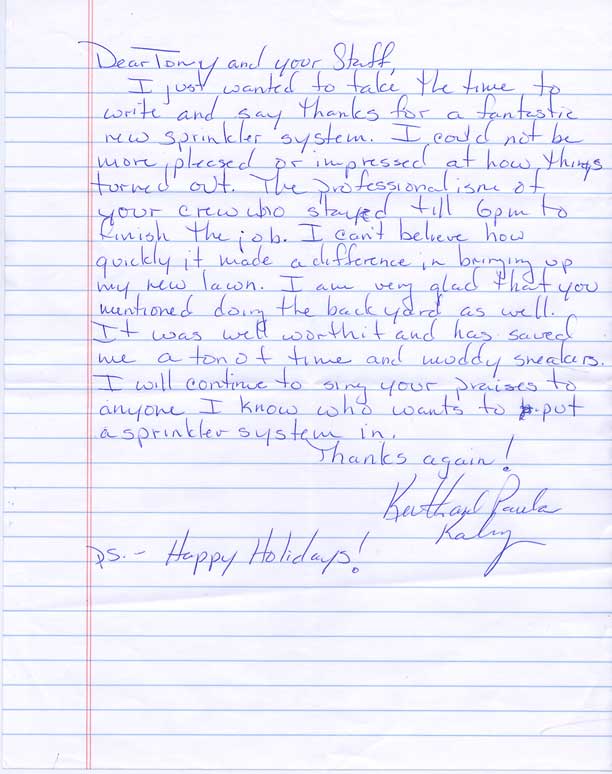 Dear Tony and your Staff,
I just wanted to take the time to
write and say thanks for a fantastic
new sprinkler system. I could not be
more pleased or impressed at how things
turned out. The professionalism of
your crew who stayed till 6pm to
finish the job. I can't believe how
quickly it made a difference in bringing up
my new lawn. I am very glad that you
mentioned doing the back yard as well.
It was well worth it and has saved
me a ton of time and muddy sneakers.
I will continue to sing your praises to
anyone I know who wants to put
a sprinkler system in.
Thanks again!
Paula
PS. - Happy Holidays!